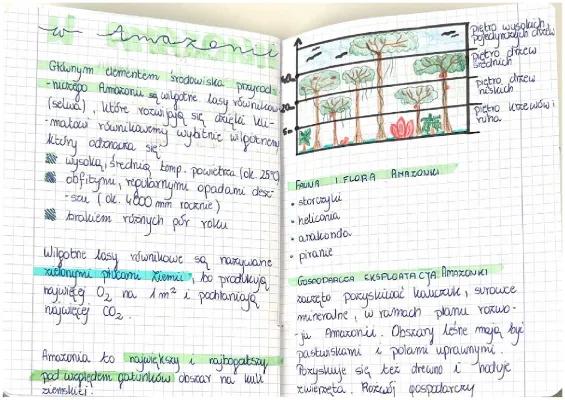 w Amazonii
Głównym elementem środowiska przyrod-
-niczego Amazonii są wilgotne lasy równikowe
(selwa), które rozwijają się dzięki kli-
-matowi równikowemu wybitnie wilgotnemu
który odznacza się
wysoką, średnią temp. powietrza (ok. 25°C)
obfitymi, regularnymi opadami desz-
-czu (ok. 4000 mm rocznie)
brakiem różnych pór roku
Wilgotne lasy równikowe są nazywane
zielonymi płucami Ziemi, bo produkują
najwięcej O2 na 1 m² i pochłaniają
najwięcej CO2.
Amazonia to największy i najbogatszy
pod względem gatunków obszar na kuli
ziemskiej.
piętro wysokich
pojedynczych drzew
piętro drzew
średnich
piętro drzew
niskich
piętro krzewów i
runa.
40m
20m
5m
FAUNA I FLORA AMAZONKI
• storczyki
• helikonia
• anakonda
• piranie
GOSPODARCZA EKSPLOATACJA AMAZONKI
zaczęto pozyskiwać kauczuk, surowce
mineralne, w ramach planu rozwo-
-ju Amazonii. Obszary leśne mają być
pastwiskami i polami uprawnymi.
Pozyskuje się też drewno i hoduje
zwierzęta. Rozwój gospodarczy